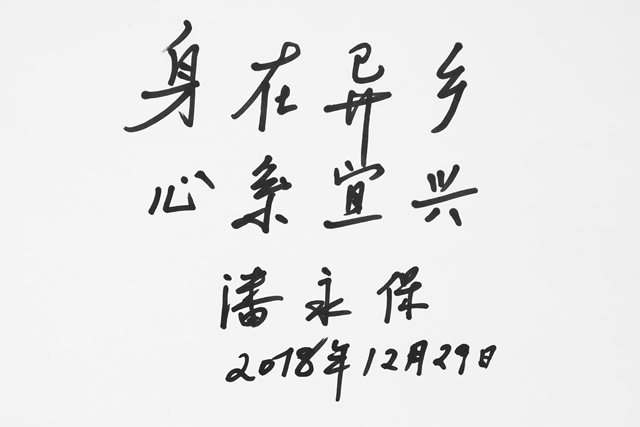 身在异乡
心系宜兴
潘永保
2018年12月29日